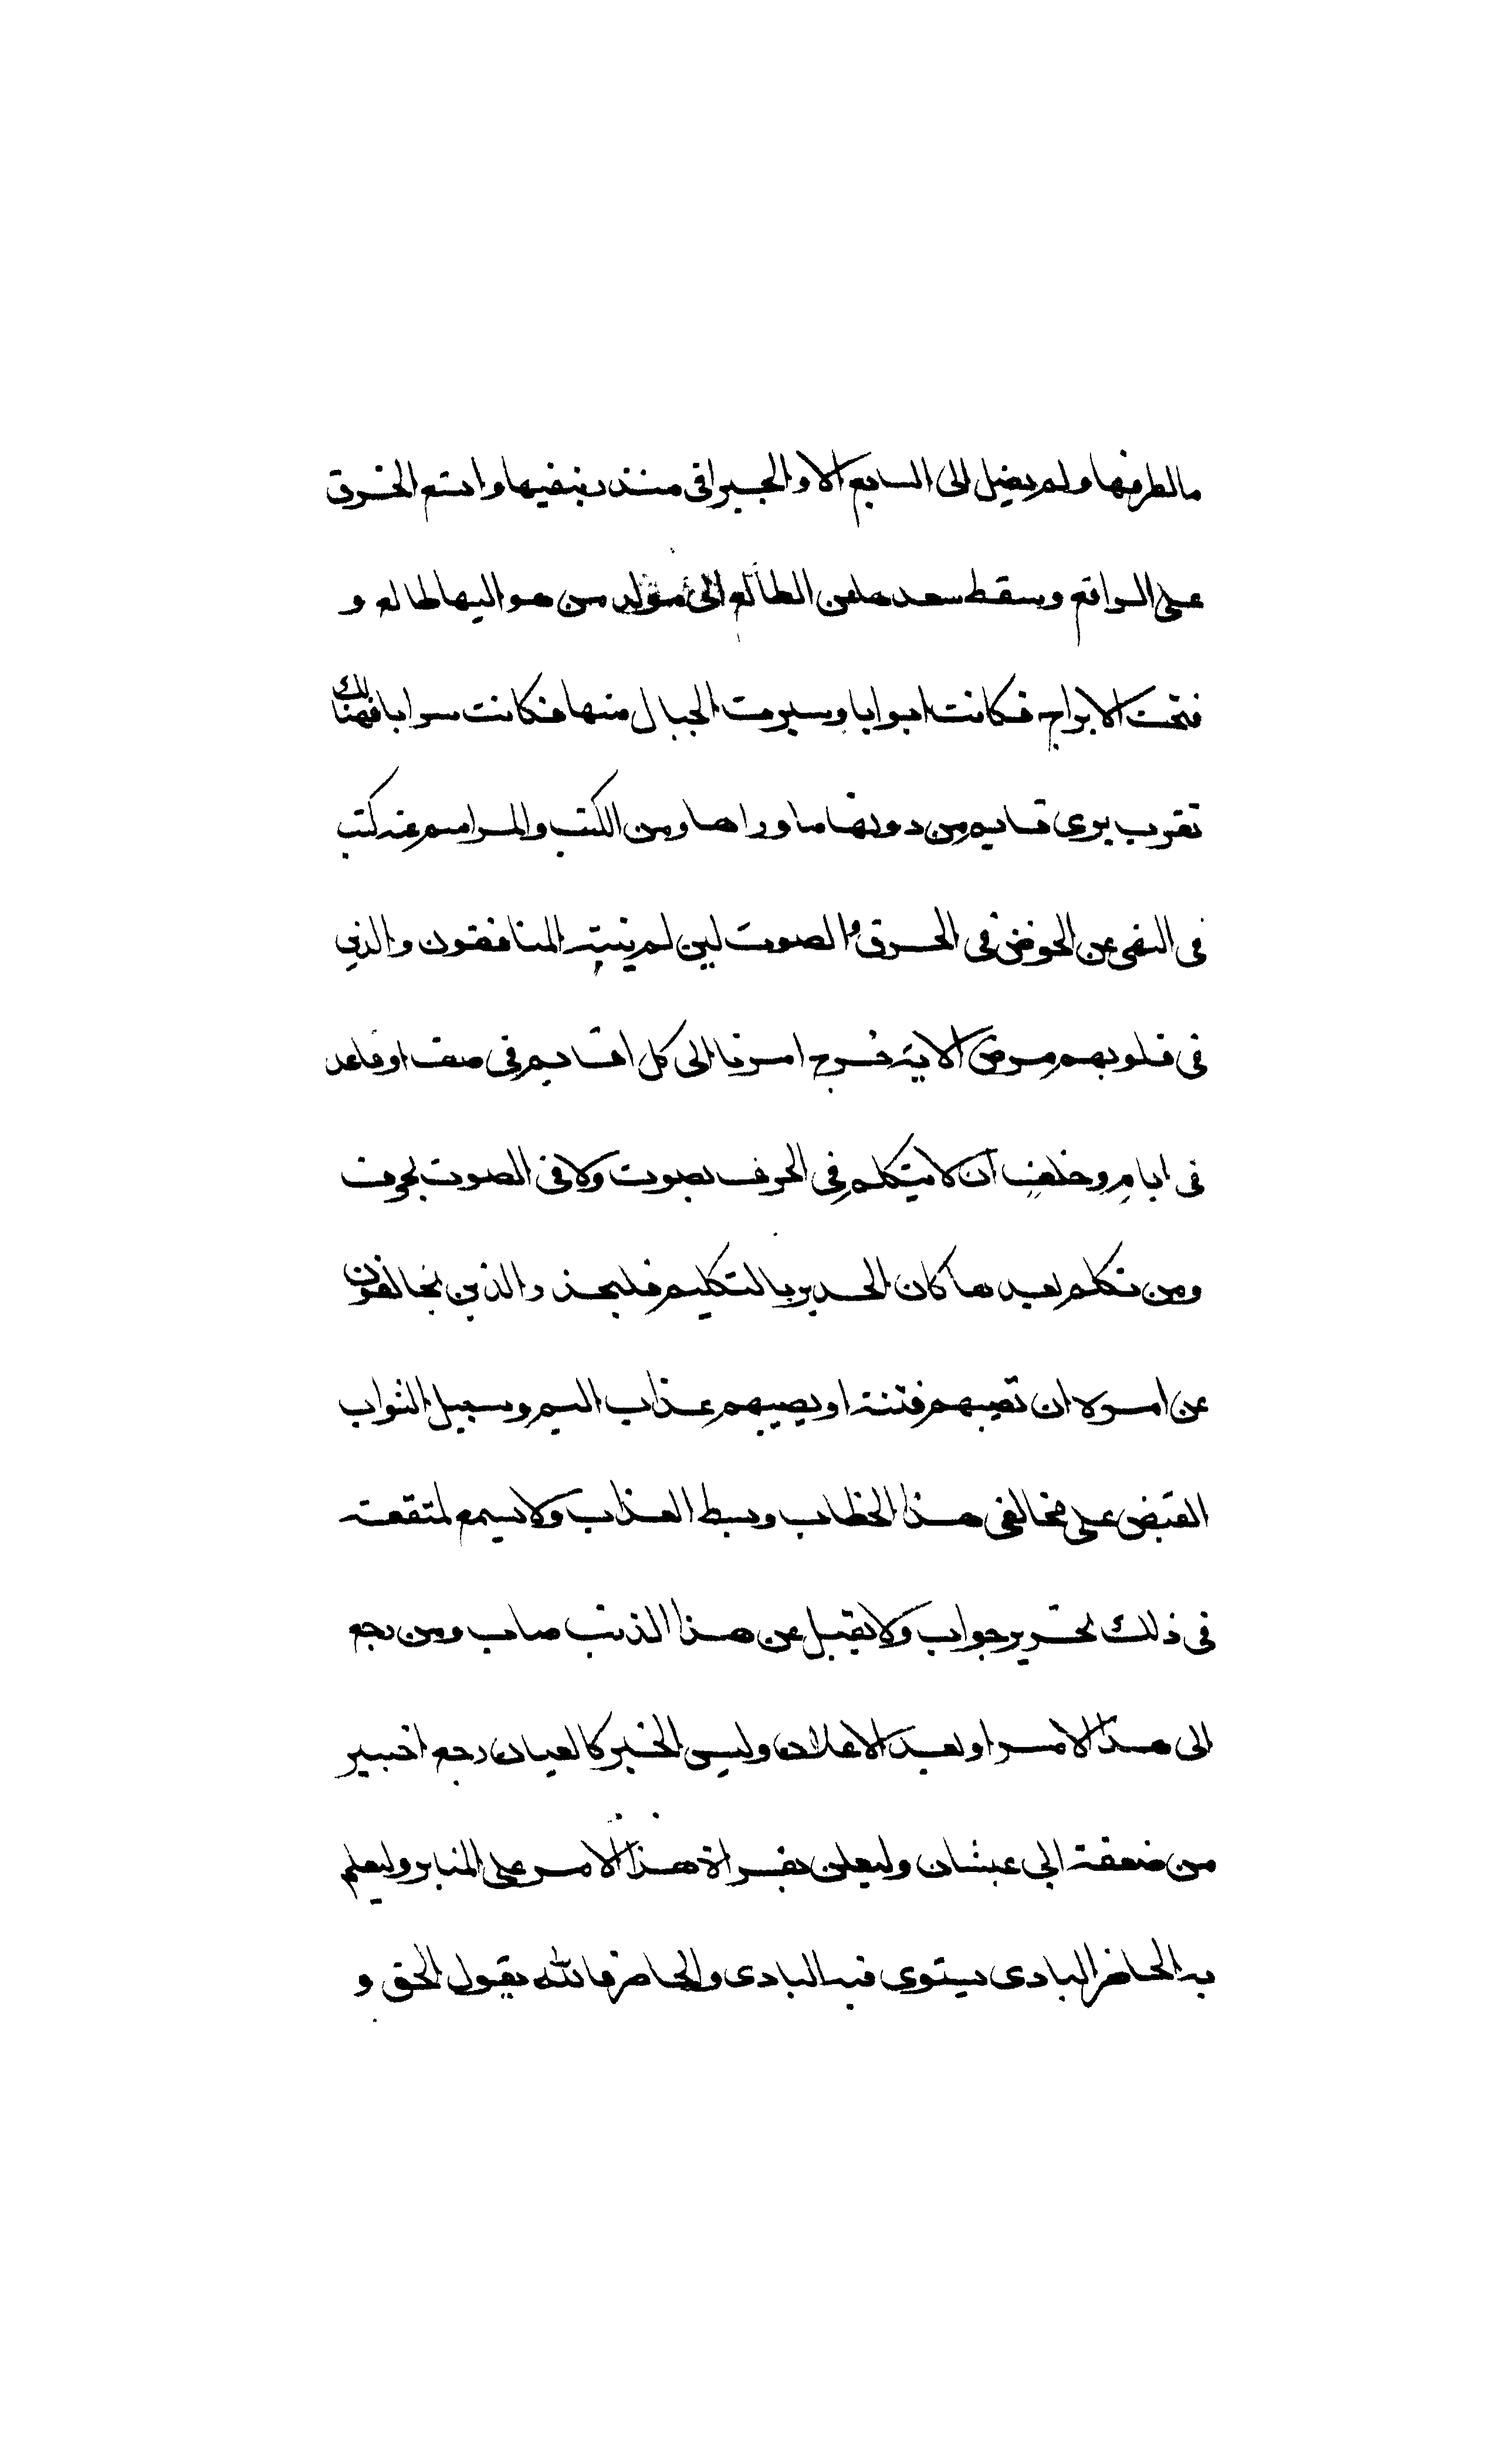 ما لطرفها ولم يصل الى السابع الا والجبراقى منذر بنفيها واتسع الخرق
على الراقع وسقط سعدها عن الطالع الى مولد من هو اليها طالع و
فتحت الابراج فكانت ابوابا وسيرت الجبال منها فكانت سرابا فهنالك
تقرب يرى قايم من دونها ما وراها ومن الكتب والمراسم عنه كتب
فى النهى عن الخوض فى الحرف والصوت لين لم ينته المنافقون والذين
فى قلوبهم مرض الاية خرج امرنا الى كل قايم فى صف او قاعد
فى ايام وخلف ان لا يتكلم فى الحرف بصوت ولا فى الصوت بحرف
ومن تكلم بعدها كان الجدير بالتكليم فليحذر الذين يخالفون
عن امره ان تصيبهم فتنة او يصيبهم عذاب اليم وسبيل الثواب
القبض على مخالفى هذا الخطاب وبسط العذاب ولا يسمع لمتفقه
فى ذلك تحرير جواب ولا يقبل عن هذا الذنب متاب ومن رجع
الى هذا الامر او بعد الاعلان وليس الخبر كالعيان رجع اخسر
من صفقة ابى غبشان وليعلن بقراة هذا الامر على المنابر وليعلم
به الحاضر البادى يستوى فيه البادى والحاضر والله يقول الحق و